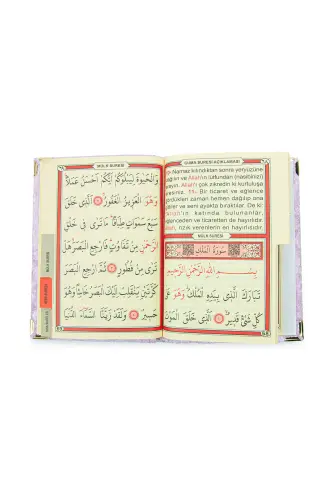 CUMA SURESİ AÇIKLAMASI
Namaz kılındıktan sonra yeryüzüne
dağılın ve Allah'ın lütfundan (nasibinizi)
Allah'ı çok zikredin ki kurtuluşa
Bir ticaret ve eğlence
gördükleri zaman hemen dağılıp ona
ler ve seni ayakta bıraktılar. De ki:
Allah'ın katında bulunanlar,
eğlenceden ve ticaretten de hayırlıdır.
Allah, rızık verenlerin en hayırlısıdır.
MÜLK SURESİ
سُورَةُ الْمُلْكِ
بِسْمِ اللّٰهِ الرَّحْمٰنِ الرَّحِيمِ
تَبَارَكَ الَّذِى بِيَدِهِ الْمُلْكُ وَهُوَ عَلٰى
كُلِّ شَىْءٍ قَدِيرٌ ۝ اَلَّذِى خَلَقَ الْمَوْتَ
MÜLK SURESİ
وَالْحَيٰوةَ لِيَبْلُوَكُمْ اَيُّكُمْ اَحْسَنُ عَمَلًا
وَهُوَ الْعَزِيزُ الْغَفُورُ ۝ اَلَّذِى خَلَقَ
سَبْعَ سَمٰوَاتٍ طِبَاقًا مَا تَرٰى فِى خَلْقِ
الرَّحْمٰنِ مِنْ تَفَاوُتٍ فَارْجِعِ الْبَصَرَ هَلْ
تَرٰى مِنْ فُطُورٍ ۝ ثُمَّ ارْجِعِ الْبَصَرَ
كَرَّتَيْنِ يَنْقَلِبْ اِلَيْكَ الْبَصَرُ خَاسِئًا وَهُوَ
حَسِيرٌ ۝ وَلَقَدْ زَيَّنَّا السَّمَٓاءَ الدُّنْيَا